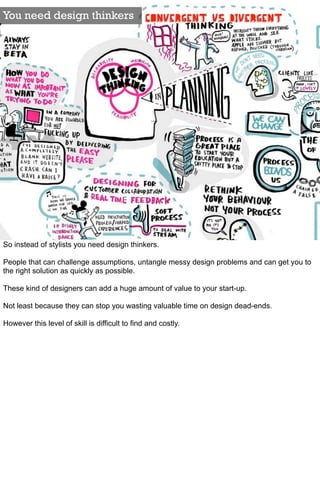 You need design thinkers
CONVERGENT VS DIVERGENT
THINKING
MICROSOFT THROW EVERYTHING
AT THE WALL AND SEE
WHAT STICKS.
ALWAYS
STAY IN
BETA
HOW YOU DO
WHAT YOU DO
NOW AS IMPORTANT
AS WHAT YOU'RE
TRYING TO DO?
DESIRABILITY
FEASIBILITY
DESIGN
THINKING
IN PLANNING
CLIENTS LIKE
PROCESS
WE CAN
CHANGE
IN A COMPANY
YOU ARE REWARDED
FOR NOT
FUCKING UP
BY DELIVERING
THE EASY
PLEASE
I'VE DESIGNED
A COMPLETELY
BLANK WEBSITE
AND IT DOESN'T
CRASH CAN I
HAVE A RAISE?
PROCESS IS A
GREAT PLACE
TO START YOUR
EDUCATION BUT A
SHITTY PLACE TO STOP
PROCESS
BINDS
US
THE
OF
DESIGNING FOR
CUSTOMER COLLABORATION
& REAL TIME FEEDBACK
RETHINK
YOUR BEHAVIOUR
NOT YOUR PROCESS
SOFT
PROCESS
TO DEAL WITH
STREAM
So instead of stylists you need design thinkers.
People that can challenge assumptions, untangle messy design problems and can get you to
the right solution as quickly as possible.
These kind of designers can add a huge amount of value to your start-up.
Not least because they can stop you wasting valuable time on design dead-ends.
However this level of skill is difficult to find and costly.